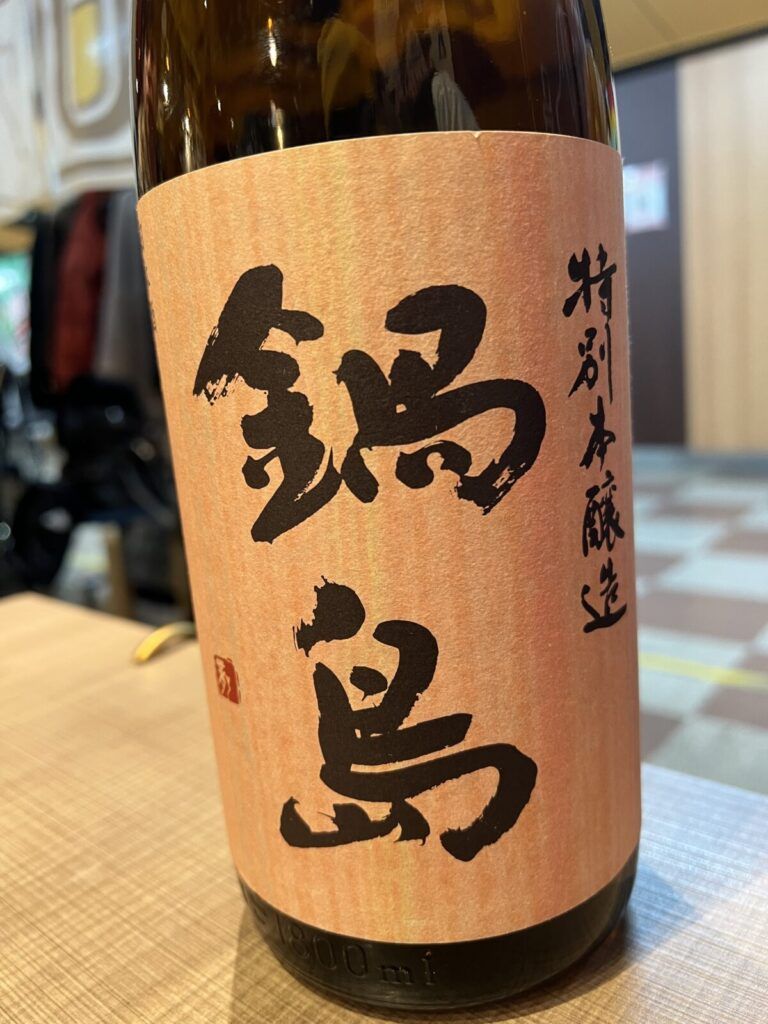 特別本醸造
鍋島
1800ml